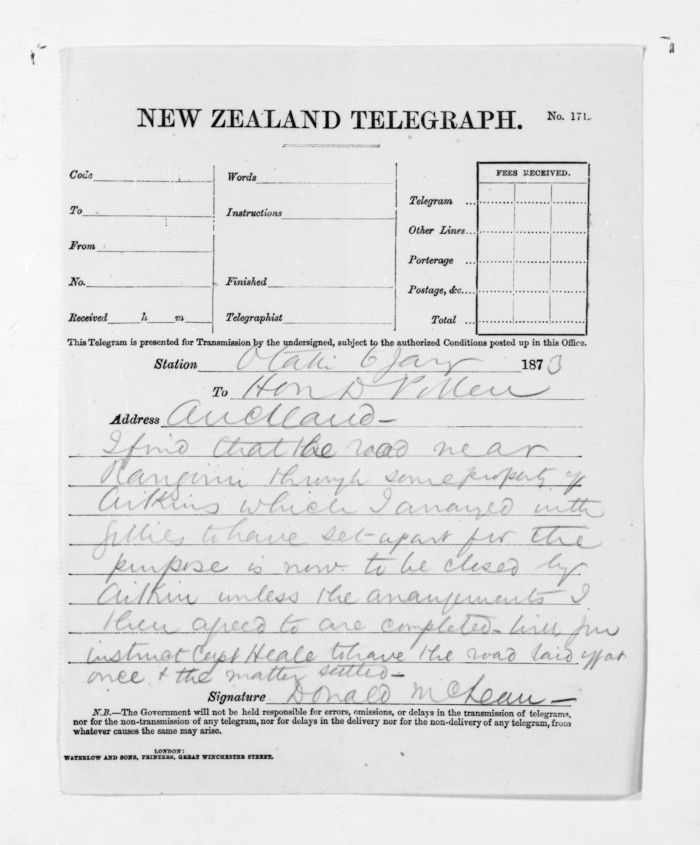 NEW ZEALAND TELEGRAPH.
No. 171.
Code
To
From
No.
Received h m
Words
Instructions
Finished
Telegraphist
FEES RECEIVED.
Telegram ...
Other Lines...
Porterage ...
Postage, &c....
Total ...
This Telegram is presented for Transmission by the undersigned, subject to the authorized Conditions posted up in this Office.
Station Otaki 6 Jany 1873
To Hon D Pollen
Address Auckland-
I find that the road near
through some property of
Aitkins which I arranged with
Gillies to have set apart for the
purpose is now to be closed by
Aitkin unless the arrangements I
then agreed to are completed- will you
instruct Capt Heale to have the road laid off at
once & the matter settled-
Signature Donald McLean-
N.B.—The Government will not be held responsible for errors, omissions, or delays in the transmission of telegrams,
nor for the non-transmission of any telegram, nor for delays in the delivery nor for the non-delivery of any telegram, from
whatever causes the same may arise.
LONDON:
WATERLOW AND SONS, PRINTERS, GREAT WINCHESTER STREET.